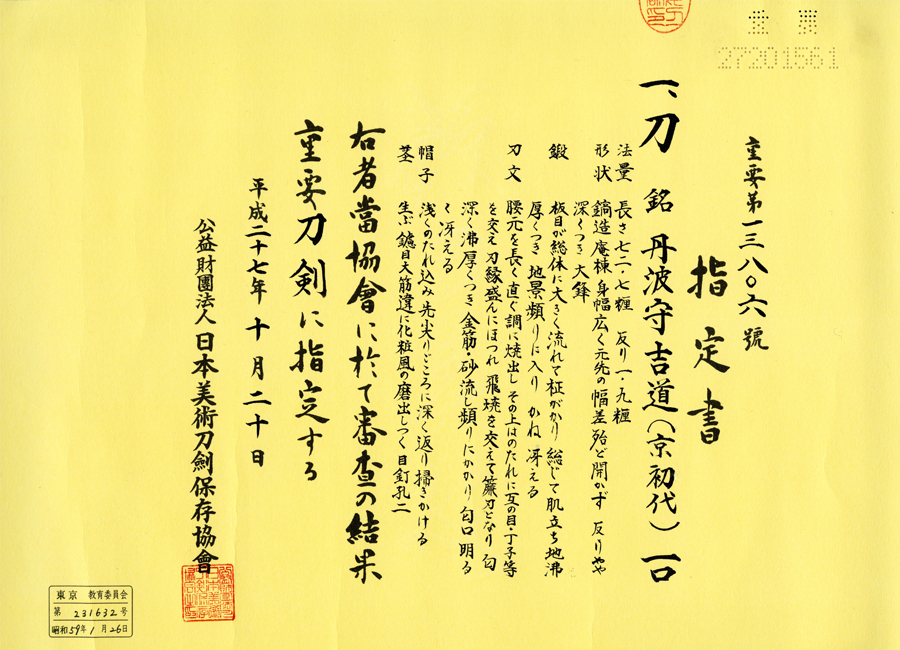 重要
27201561
重要第一三八〇六號
指定書
一、刀 銘 丹波守吉道(京初代) 一口
法量 長さ七二・七糎 反り一・九糎
形状 鎬造 庵棟 身幅広く 元先の幅差殆ど開かず 反りやや
深くつき 大鋒
鍛 板目が総体に大きく流れて柾がかり 総じて肌立ち 地沸
厚くつき 地景頻りに入り かね冴える
刃文 腰元を長く直ぐ調に焼出し その上はのたれに互の目・丁子等
を交え 刃縁盛んにほつれ 飛焼を交えて簾刃となり 匂
深く 沸厚くつき 金筋・砂流し頻りにかかり 匂口明る
く冴える
帽子 浅くのたれ込み 先尖りごころに深く返り 掃きかける
茎 生ぶ 鑢目大筋違に化粧風の磨出しつく 目釘孔二
右者當協會に於て審査の結果
重要刀剣に指定する
平成二十七年十月二十日
公益財團法人日本美術刀劍保存協會
東京 教育委員会
第 231632 号
昭和59年1月26日